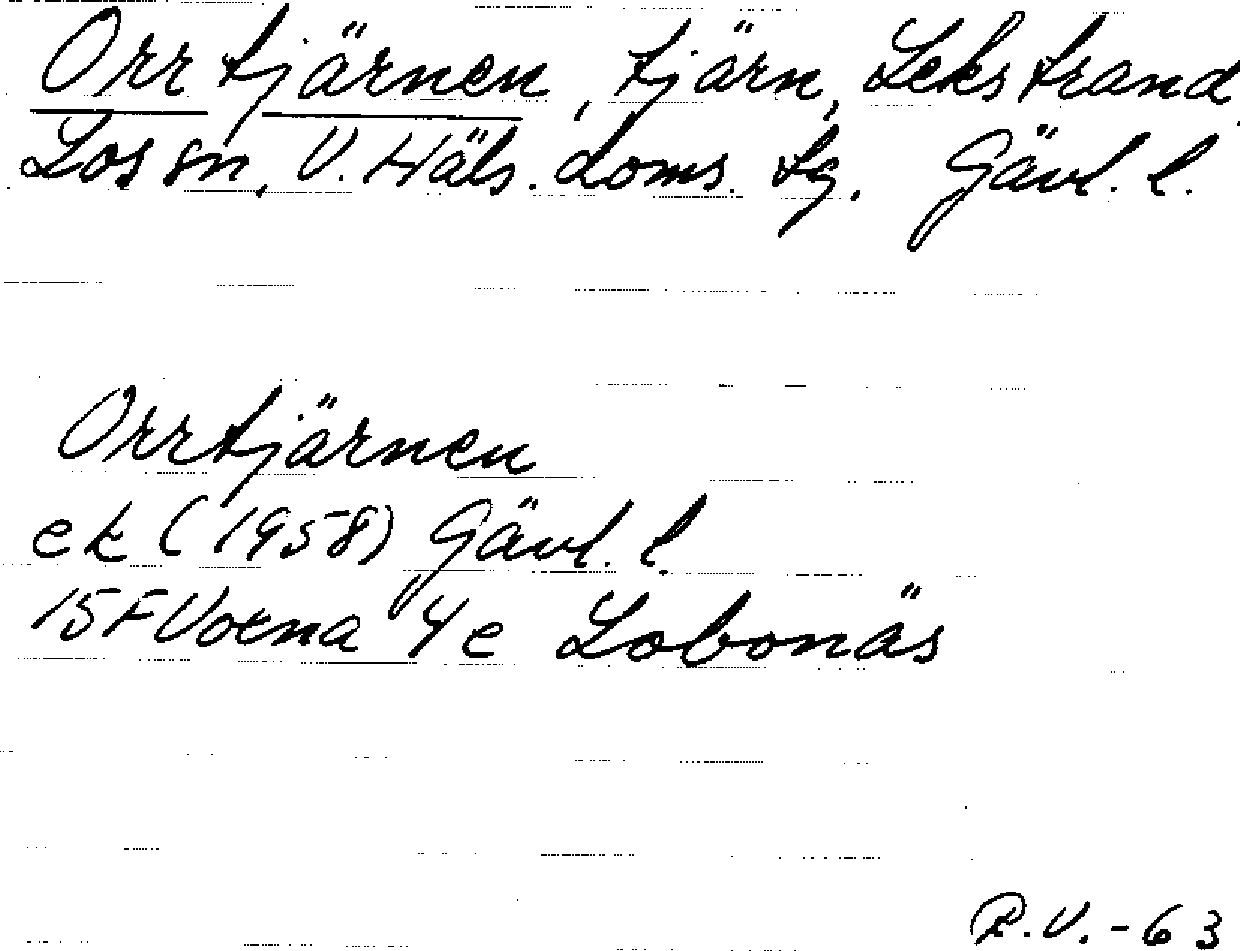 Orrtjärnen, tjärn, Lekstrand,
Los sn, V. Häls. doms. tg. Gävl. l.
Orrtjärnen
ek (1958) Gävl. l.
15F Voxna 4e Lobonäs
R.V.-63